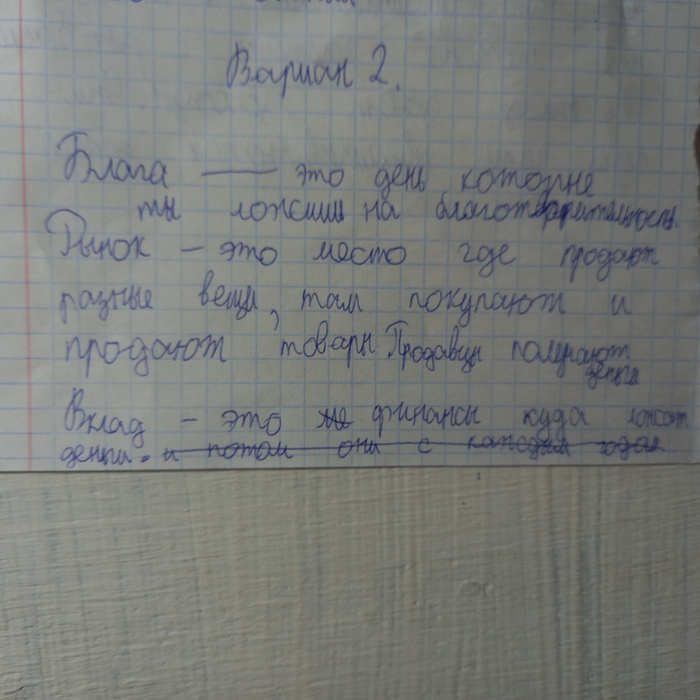 Вариан 2.
Блага — это день которые
ты ложиш на благотварительность.
Рынок – это место где продают
разные вещи, там покупают и
продают товары. Продавцы получают
деньги
Вклад – это же финансы куда ложат
деньги. и потом они с каждым годом